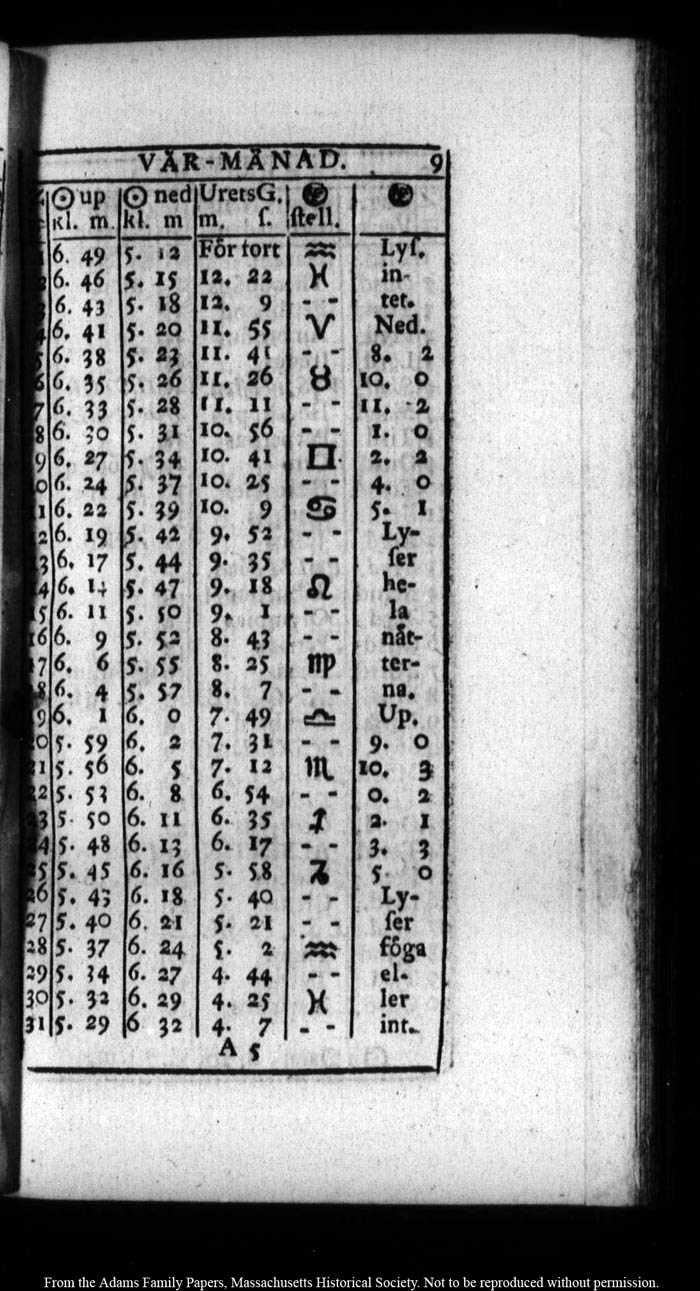 VÅR-MÅNAD. 9
☉ up ☉ ned UretsG.
kl. m. kl. m m. ſ. ſtell.
6. 49 5. 12 För fort ♒ Lyſ.
6. 46 5. 15 12. 22 ♓ in-
6. 43 5. 18 12. 9 - - tet.
6. 41 5. 20 11. 55 ♈ Ned.
5 6. 38 5. 23 11. 41 - - 8. 2
6 6. 35 5. 26 11. 26 ♉ 10. 0
7 6. 33 5. 28 11. 11 - - 11. 2
8 6. 30 5. 31 10. 56 - - 1. 0
9 6. 27 5. 34 10. 41 ♊ 2. 2
0 6. 24 5. 37 10. 25 - - 4. 0
1 6. 22 5. 39 10. 9 ♋ 5. 1
2 6. 19 5. 42 9. 52 - - Ly-
3 6. 17 5. 44 9. 35 - - ſer
4 6. 14 5. 47 9. 18 ♌ he-
15 6. 11 5. 50 9. 1 - - la
16 6. 9 5. 52 8. 43 - - nåt-
17 6. 6 5. 55 8. 25 ♍ ter-
8 6. 4 5. 57 8. 7 - - na.
9 6. 1 6. 0 7. 49 ♎ Up.
20 5. 59 6. 2 7. 31 - - 9. 0
21 5. 56 6. 5 7. 12 ♏ 10. 3
22 5. 53 6. 8 6. 54 - - 0. 2
23 5. 50 6. 11 6. 35 ♐ 2. 1
24 5. 48 6. 13 6. 17 - - 3. 3
25 5. 45 6. 16 5. 58 ♑ 5. 0
26 5. 43 6. 18 5. 40 - - Ly-
27 5. 40 6. 21 5. 21 - - ſer
28 5. 37 6. 24 5. 2 ♒ föga
29 5. 34 6. 27 4. 44 - - el-
30 5. 32 6. 29 4. 25 ♓ ler
31 5. 29 6 32 4. 7 - - int.
A 5
From the Adams Family Papers, Massachusetts Historical Society. Not to be reproduced without permission.